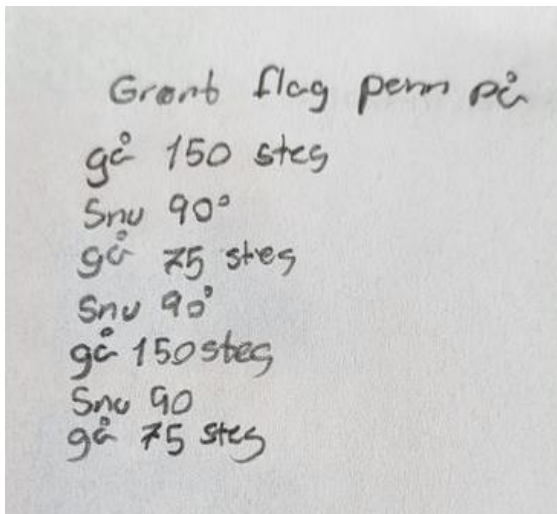 Grønt flag penn på
gå 150 steg
Snu 90°
gå 75 steg
Snu 90°
gå 150 steg
Snu 90
gå 75 steg